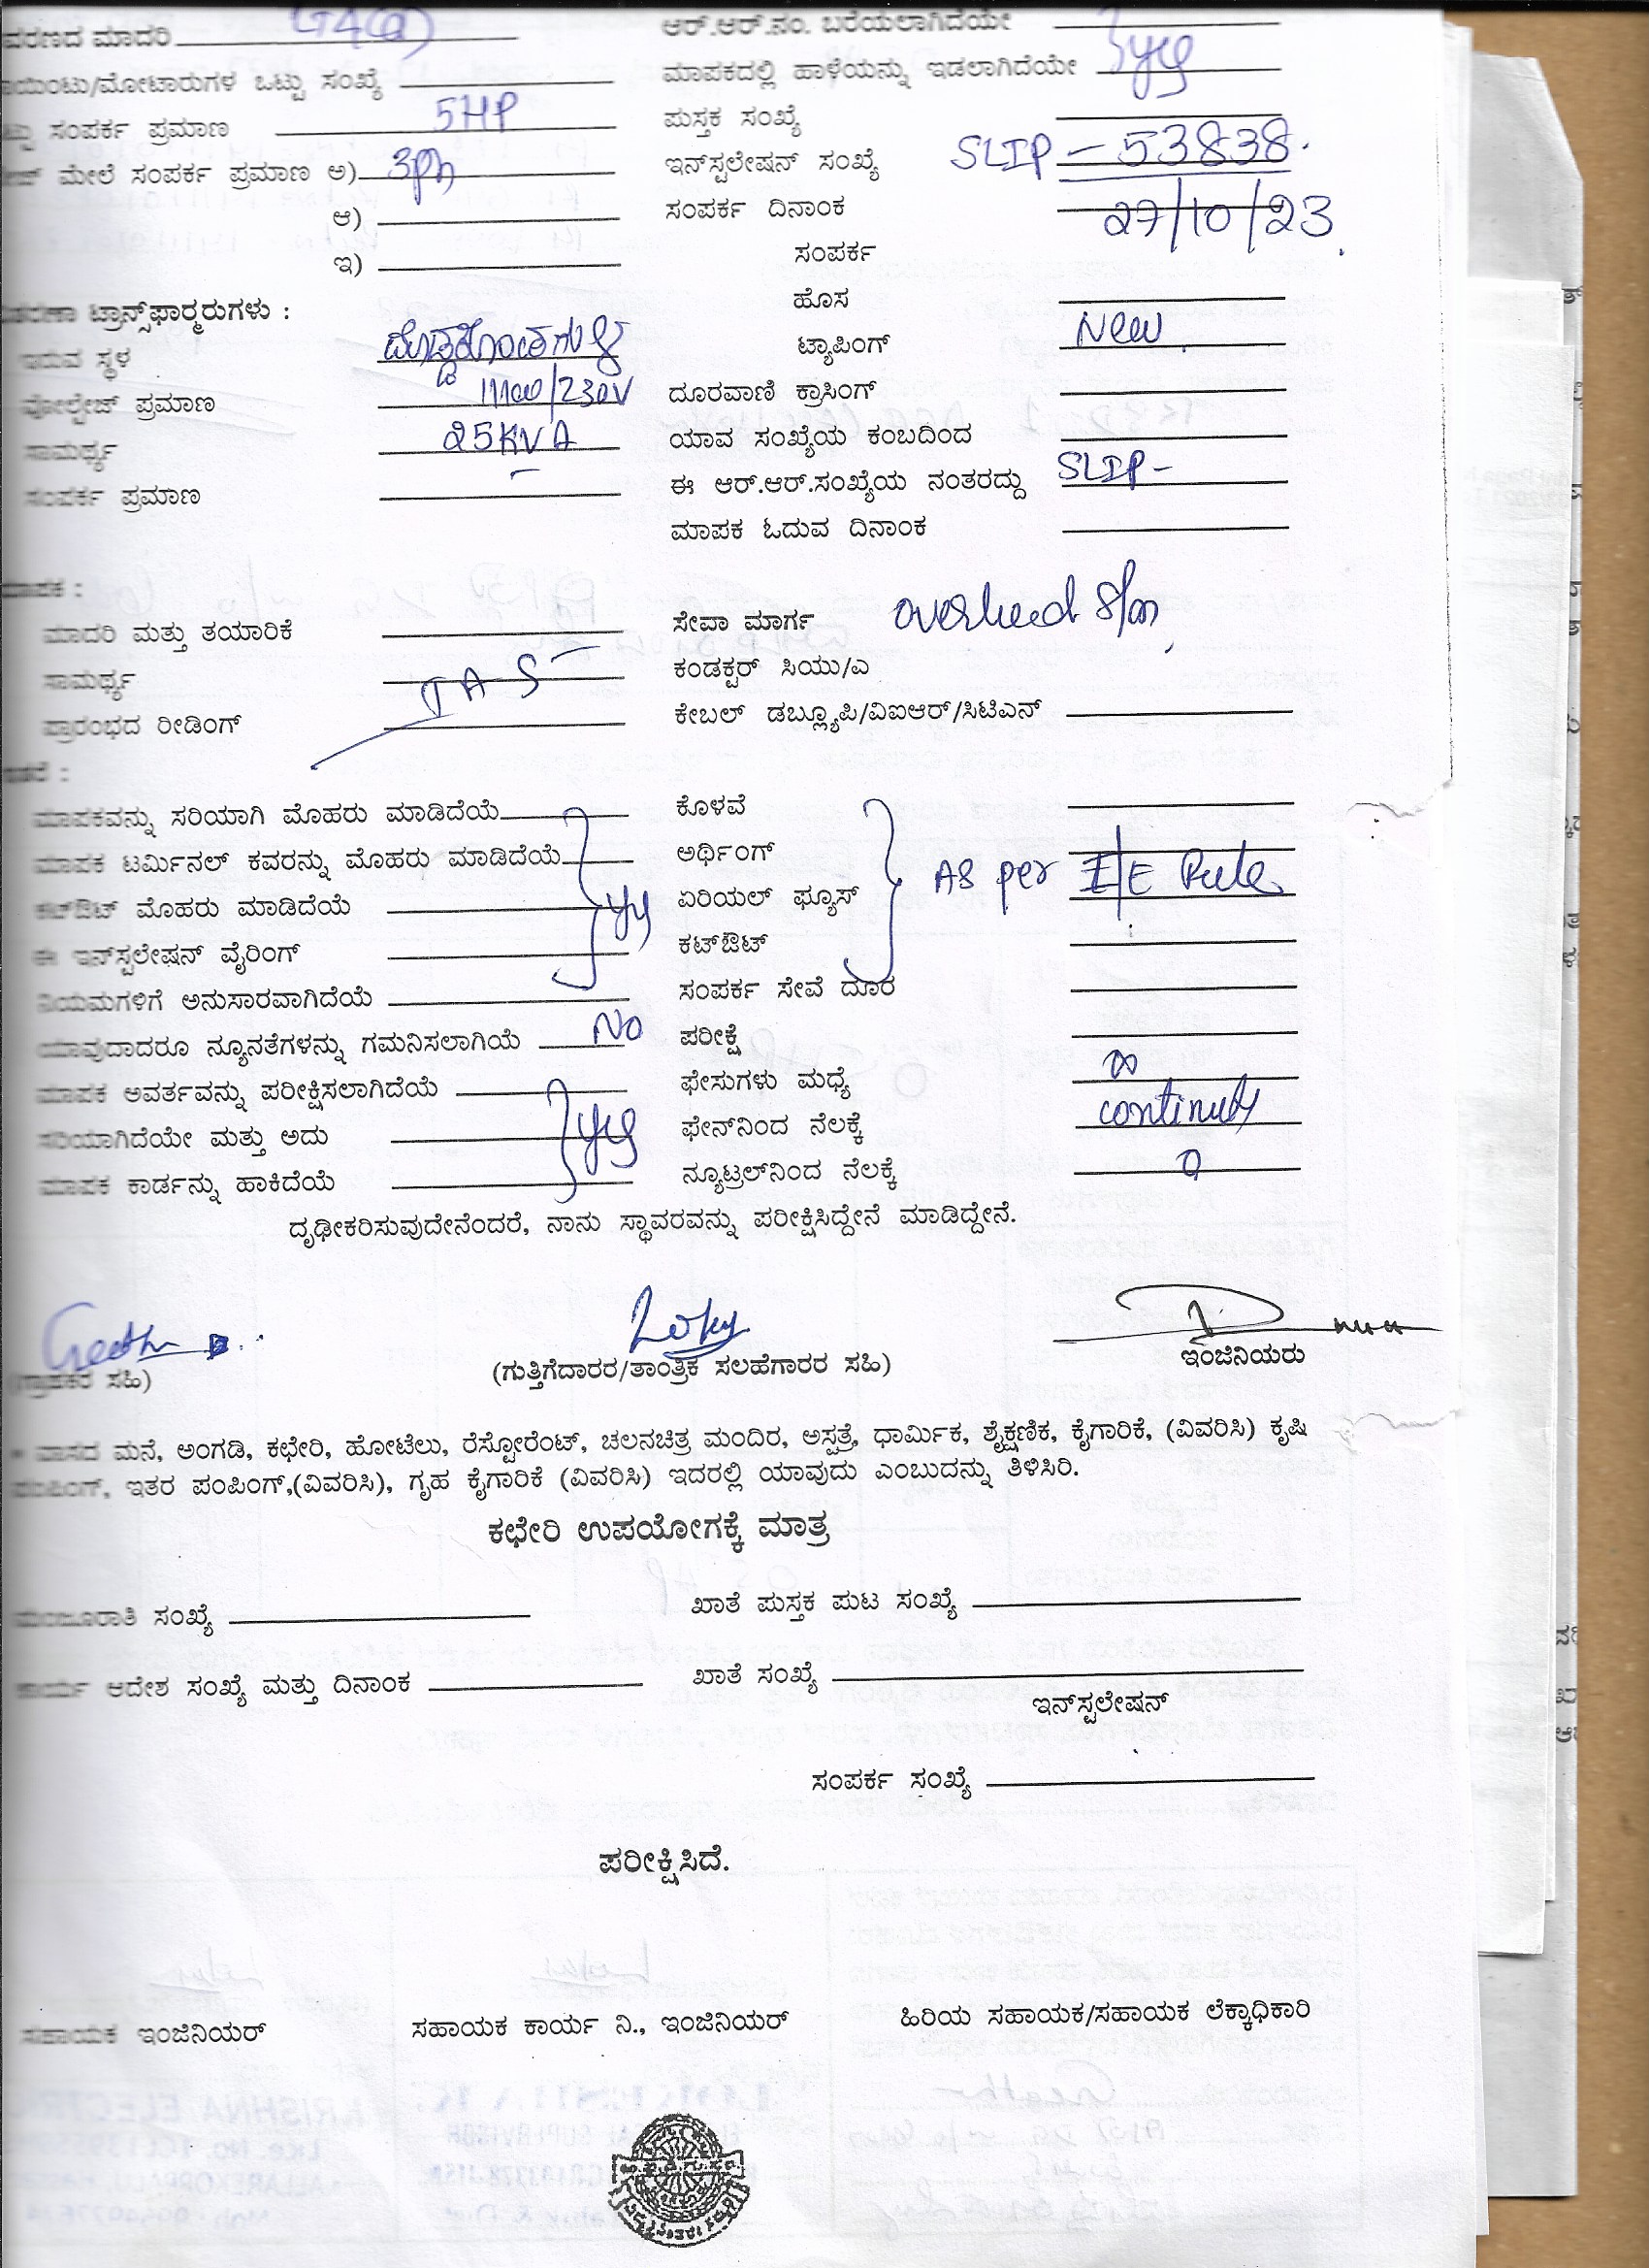 ಮಾದರಿ ಆರ್.ಆರ್.ನಂ. ಬರೆಯಲಾಗಿದೆಯೇ
ಒಟ್ಟು ಸಂಖ್ಯೆ ಮಾಪಕದಲ್ಲಿ ಹಾಳೆಯನ್ನು ಇಡಲಾಗಿದೆಯೇ
ಸಂಪರ್ಕ ಪ್ರಮಾಣ 5HP ಪುಸ್ತಕ ಸಂಖ್ಯೆ
ಮೇಲೆ ಸಂಪರ್ಕ ಪ್ರಮಾಣ ಅ) 3ph ಇನ್‌ಸ್ಟಲೇಷನ್ ಸಂಖ್ಯೆ SLIP - 53838.
ಆ) ಸಂಪರ್ಕ ದಿನಾಂಕ 27/10/23
ಇ) ಸಂಪರ್ಕ
ಟ್ರಾನ್ಸ್‌ಫಾರ್‍ಮರುಗಳು : ಹೊಸ
ಇರುವ ಸ್ಥಳ ಟ್ಯಾಪಿಂಗ್ New
ವೋಲ್ಟೇಜ್ ಪ್ರಮಾಣ ದೂರವಾಣಿ ಕ್ರಾಸಿಂಗ್
ಸಾಮರ್ಥ್ಯ 25KVA ಯಾವ ಸಂಖ್ಯೆಯ ಕಂಬದಿಂದ
ಸಂಪರ್ಕ ಪ್ರಮಾಣ ಈ ಆರ್.ಆರ್.ಸಂಖ್ಯೆಯ ನಂತರದ್ದು SLIP -
ಮಾಪಕ ಓದುವ ದಿನಾಂಕ
ಮಾಪಕ :
ಮಾದರಿ ಮತ್ತು ತಯಾರಿಕೆ ಸೇವಾ ಮಾರ್ಗ overhead
ಸಾಮರ್ಥ್ಯ ಕಂಡಕ್ಟರ್ ಸಿಯು/ಎ
ಪ್ರಾರಂಭದ ರೀಡಿಂಗ್ ಕೇಬಲ್ ಡಬ್ಲ್ಯೂಪಿ/ವಿಐಆರ್/ಸಿಟಿಎನ್
ಮಾಪಕವನ್ನು ಸರಿಯಾಗಿ ಮೊಹರು ಮಾಡಿದೆಯೆ ಕೊಳವೆ
ಮಾಪಕ ಟರ್ಮಿನಲ್ ಕವರನ್ನು ಮೊಹರು ಮಾಡಿದೆಯೆ ಅರ್ಥಿಂಗ್
ಕಟ್‌ಔಟ್ ಮೊಹರು ಮಾಡಿದೆಯೆ ಏರಿಯಲ್ ಫ್ಯೂಸ್ As per I/E Rule
ಈ ಇನ್‌ಸ್ಟಲೇಷನ್ ವೈರಿಂಗ್ ಕಟ್‌ಔಟ್
ನಿಯಮಗಳಿಗೆ ಅನುಸಾರವಾಗಿದೆಯೆ ಸಂಪರ್ಕ ಸೇವೆ ದೂರ
ಯಾವುದಾದರೂ ನ್ಯೂನತೆಗಳನ್ನು ಗಮನಿಸಲಾಗಿಯೆ No ಪರೀಕ್ಷೆ
ಮಾಪಕ ಅವರ್ತವನ್ನು ಪರೀಕ್ಷಿಸಲಾಗಿದೆಯೆ ಫೇಸುಗಳು ಮಧ್ಯೆ ∞
ಸರಿಯಾಗಿದೆಯೇ ಮತ್ತು ಅದು ಫೇನ್‌ನಿಂದ ನೆಲಕ್ಕೆ continuty
ಮಾಪಕ ಕಾರ್ಡನ್ನು ಹಾಕಿದೆಯೆ ನ್ಯೂಟ್ರಲ್‌ನಿಂದ ನೆಲಕ್ಕೆ 0
ದೃಢೀಕರಿಸುವುದೇನೆಂದರೆ, ನಾನು ಸ್ಥಾವರವನ್ನು ಪರೀಕ್ಷಿಸಿದ್ದೇನೆ ಮಾಡಿದ್ದೇನೆ.
(ಗ್ರಾಹಕರ ಸಹಿ) (ಗುತ್ತಿಗೆದಾರರ/ತಾಂತ್ರಿಕ ಸಲಹೆಗಾರರ ಸಹಿ) ಇಂಜಿನಿಯರು
* ವಾಸದ ಮನೆ, ಅಂಗಡಿ, ಕಛೇರಿ, ಹೋಟೆಲು, ರೆಸ್ಟೋರೆಂಟ್, ಚಲನಚಿತ್ರ ಮಂದಿರ, ಅಸ್ಪತ್ರೆ, ಧಾರ್ಮಿಕ, ಶೈಕ್ಷಣಿಕ, ಕೈಗಾರಿಕೆ, (ವಿವರಿಸಿ) ಕೃಷಿ
ಪಂಪಿಂಗ್, ಇತರ ಪಂಪಿಂಗ್,(ವಿವರಿಸಿ), ಗೃಹ ಕೈಗಾರಿಕೆ (ವಿವರಿಸಿ) ಇದರಲ್ಲಿ ಯಾವುದು ಎಂಬುದನ್ನು ತಿಳಿಸಿರಿ.
ಕಛೇರಿ ಉಪಯೋಗಕ್ಕೆ ಮಾತ್ರ
ಮಂಜೂರಾತಿ ಸಂಖ್ಯೆ ಖಾತೆ ಪುಸ್ತಕ ಪುಟ ಸಂಖ್ಯೆ
ಕಾರ್ಯ ಆದೇಶ ಸಂಖ್ಯೆ ಮತ್ತು ದಿನಾಂಕ ಖಾತೆ ಸಂಖ್ಯೆ
ಇನ್‌ಸ್ಟಲೇಷನ್
ಸಂಪರ್ಕ ಸಂಖ್ಯೆ
ಪರೀಕ್ಷಿಸಿದೆ.
ಸಹಾಯಕ ಇಂಜಿನಿಯರ್ ಸಹಾಯಕ ಕಾರ್ಯ ನಿ., ಇಂಜಿನಿಯರ್ ಹಿರಿಯ ಸಹಾಯಕ/ಸಹಾಯಕ ಲೆಕ್ಕಾಧಿಕಾರಿ